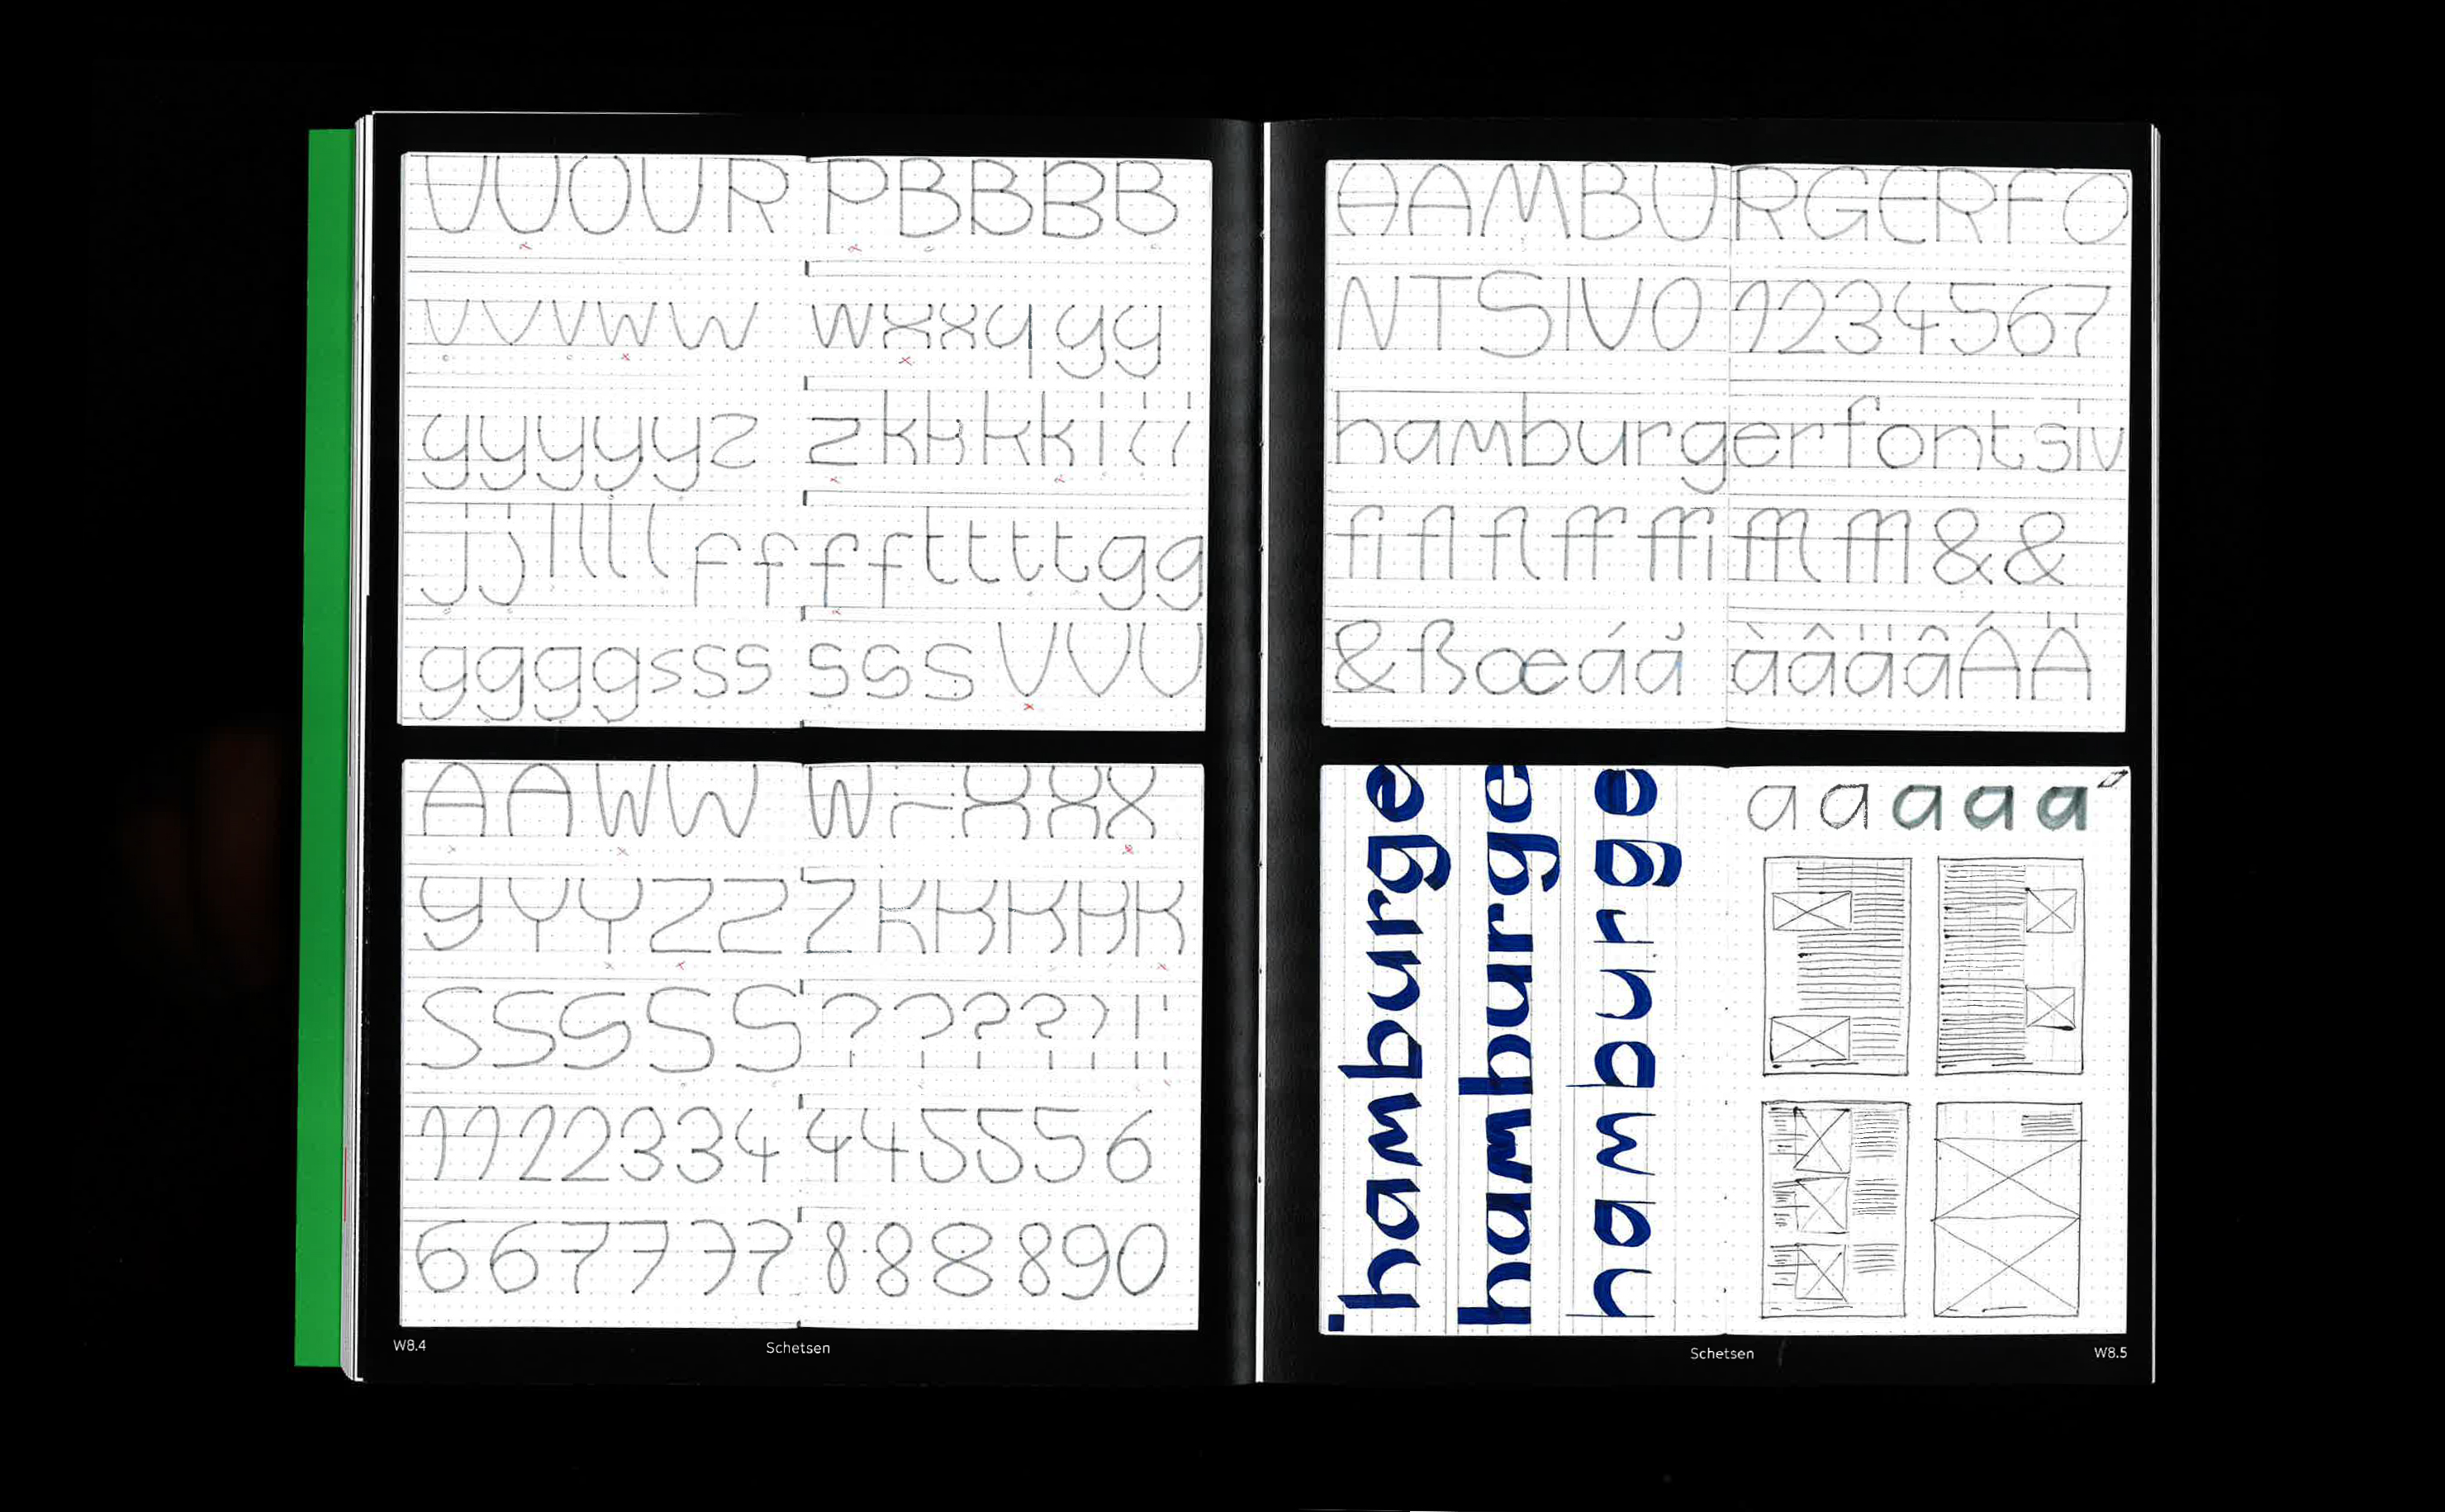 UUOUR PBBBB
vvvww wxxyyy
yyyyyz zkkkkiii
jjllllff ffttttgg
ggggsss sssVVU
AAWW W XXX
YYYZZ ZKKKKK
SSSSS ?????!!
1122334 445556
667777 888890
W8.4
Schetsen
HAMBURGERFO
NTSIVO 1234567
hamburgerfontsiv
fi fl fl ff ffi ffl ffl & &
& ß œ á ă à â ä ȃ Á Ä
hamburge
hamburge
hamburge
a a a a a
Schetsen
W8.5